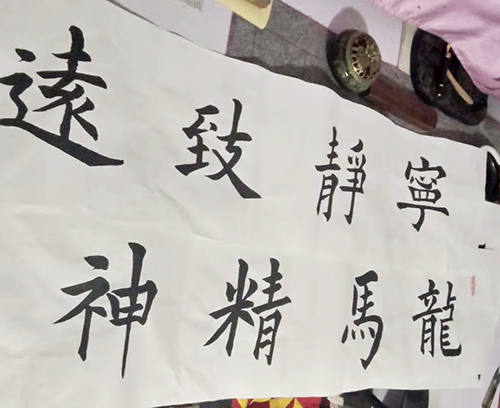 寧靜致遠
龍馬精神